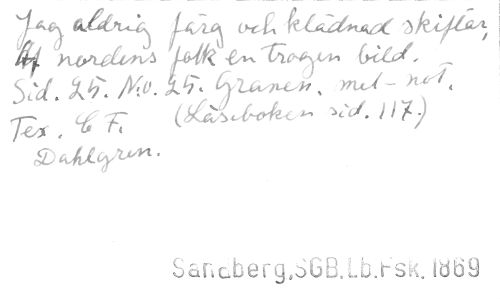 Jag aldrig färg och klädnad skiftar,
Af nordens folk en trogen bild.
Sid. 25. N:o. 25. Granen. mel-not.
Tex. C F. (Läseboken sid. 117.)
Dahlgren.
Sandberg,SGB,Lb.Fsk,1869